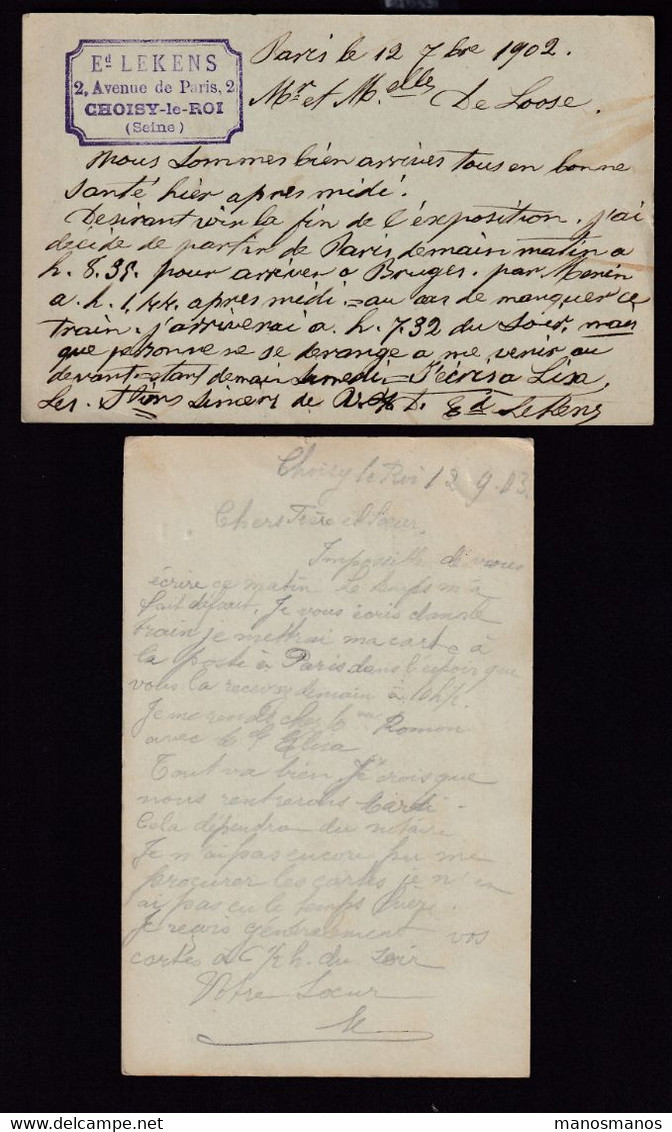 Ed LEKENS
2, Avenue de Paris, 2
CHOISY-le-ROI
(Seine)
Paris le 12 7bre 1902.
Mr et Melle De Loose.
Nous sommes bien arrivés tous en bonne
santé hier après midi.
Desirant voir la fin de l'exposition. j'ai
décidé de partir de Paris demain matin a
h. 8.35. pour arriver a Bruges. par Menin
a. h. 1,44. après midi. = au cas de manquer ce
train. j'arriverai a. h. 7.32 du soir, mais
que personne ne se derange a me venir au
devant = étant demain samedi = J'écris a Lisa,
Les sincers de Ed LeKens
Choisy le Roi 12 9.03.
Chers Frère et Soeur,
Impossible de vous
écrire ce matin le temps m'a
fait défaut. Je vous écris dans le
train je mettrai ma carte à
la poste à Paris dans l'espoir que
vous la recevrez demain à 10h½.
Je me rends chez Romon
avec Elisa
Tout va bien Je crois que
nous rentrerons Mardi -
Cela dépendra du notaire
Je n'ai pas encore pu me
procurer les cartes je n'en
ai pas eu le temps hier.
Je reçois généralement vos
cartes à h. du soir
Votre Soeur
manosmanos